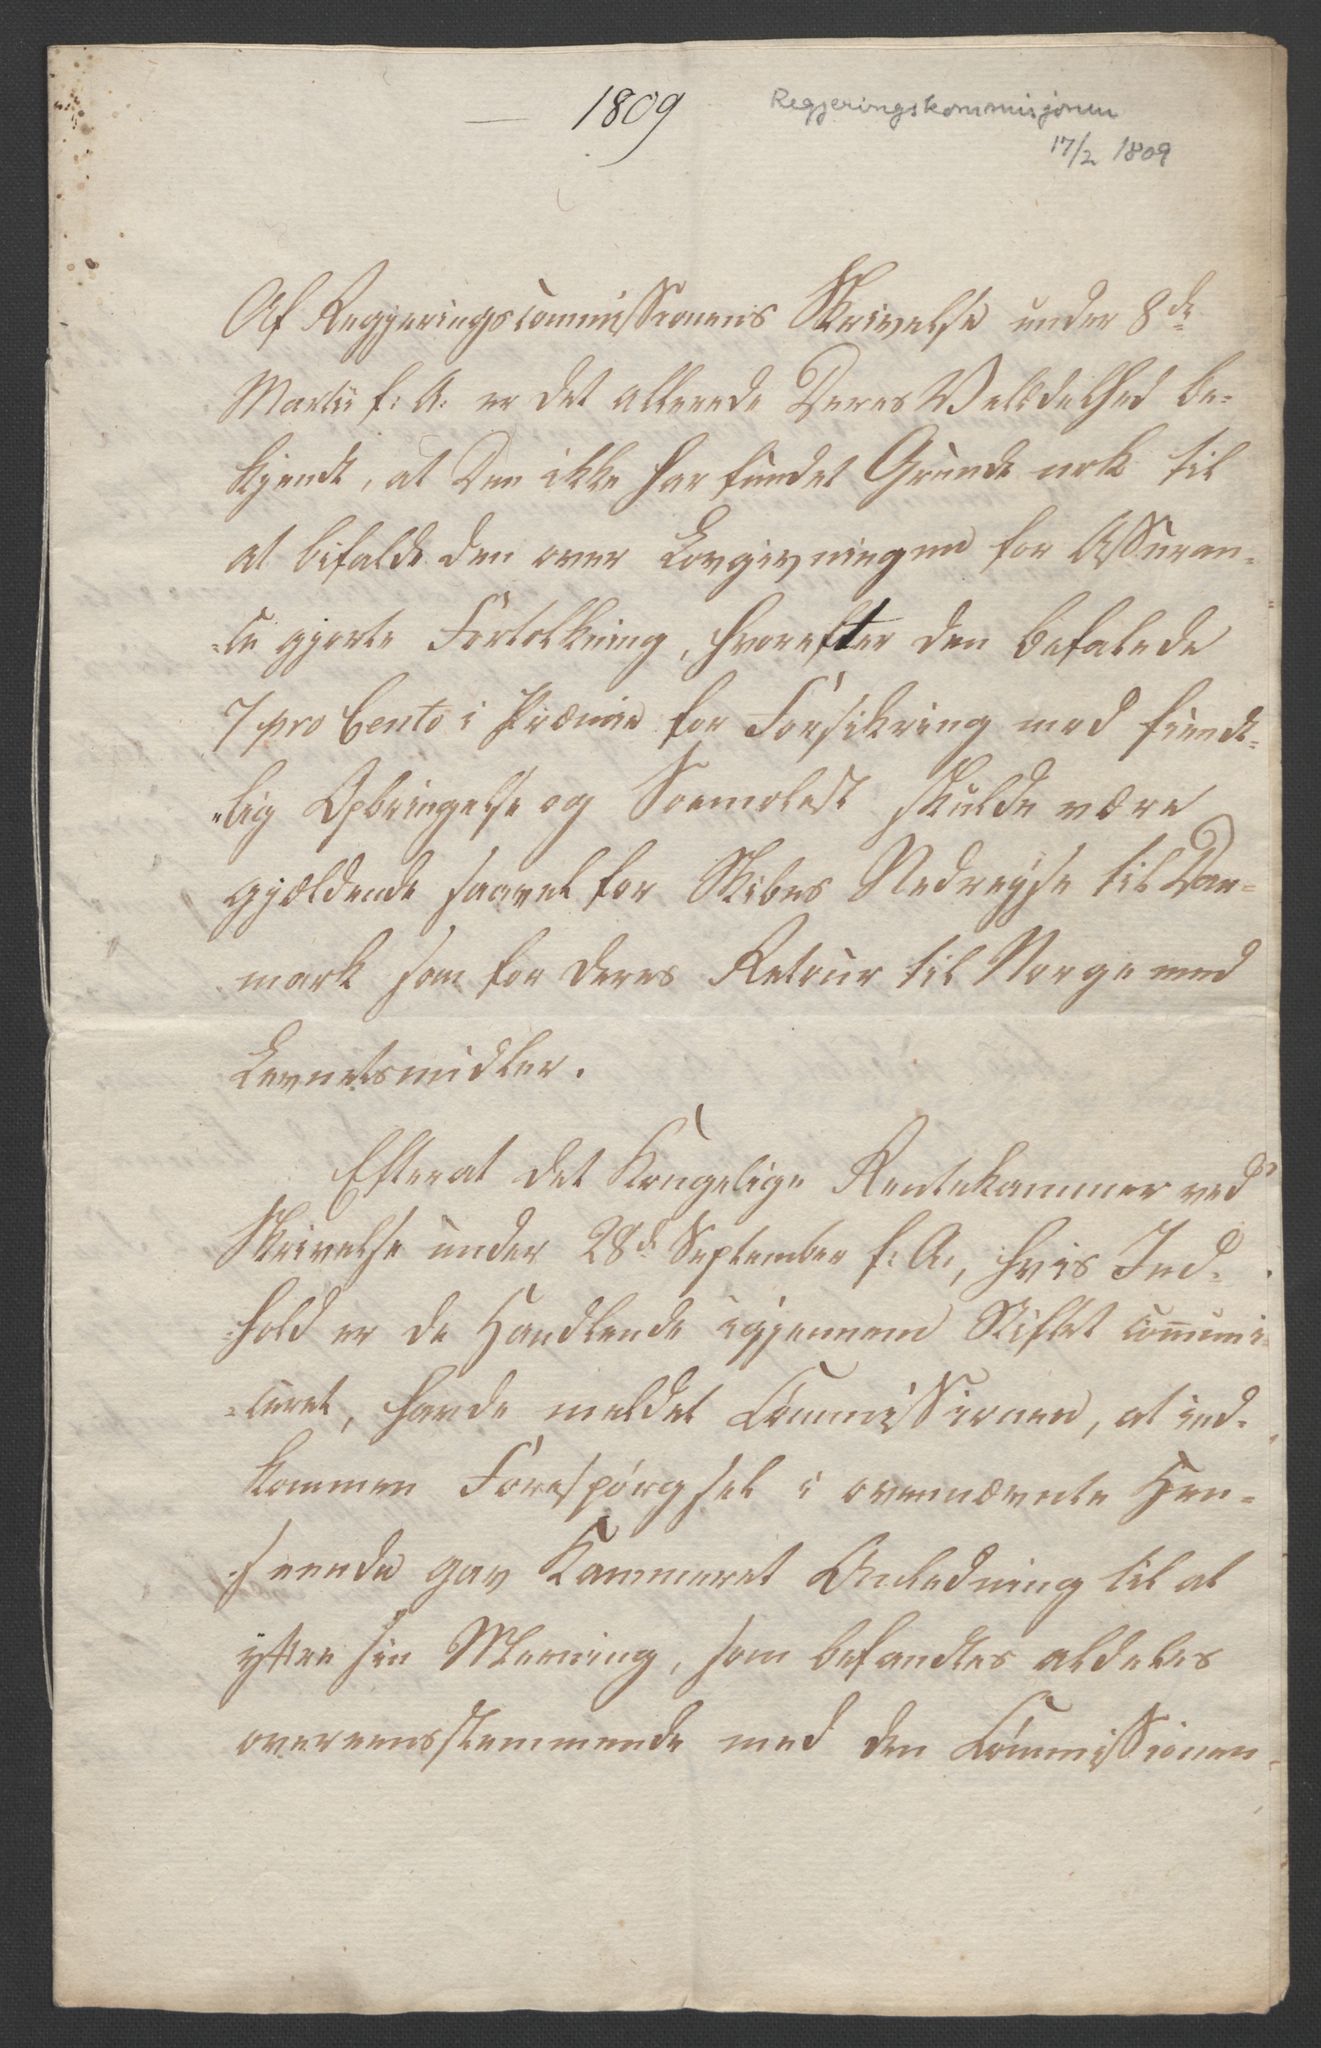 1809
Regjeringskommisjonen
17/2 1809
Af Regjeringscommissionens Skrivelse under 8de
Martii f: A: er det allerede Deres Velædelhed be-
kjendt, at Den ikke har fundet Grunde nok til
at bifalde den over Lovgivningen for Assuran-
-cer gjorte Fortolkning, hvorefter den befalede
7 pro Cento i Præmie for Forsikring mod fiendt-
-lig Opbringelse og Søemolest skulde være
gjældende saavel for Skibes Nedreyse til Dan-
mark som for deres Retour til Norge med
Levnetsmidler.
Efterat det Kongelige Rentekammer ved
Skrivelse under 28de September f: A:, hvis Ind-
-hold er de Handlende igjennem Stiftet communi-
-ceret, havde meldet Commissionen, at ind-
kommen Forespørgsel i ovennævnte Hen-
-seende gav Kammeret Anledning til at
yttre sin Mening, som befandtes aldeles
overeensstemmende med den Commissionen